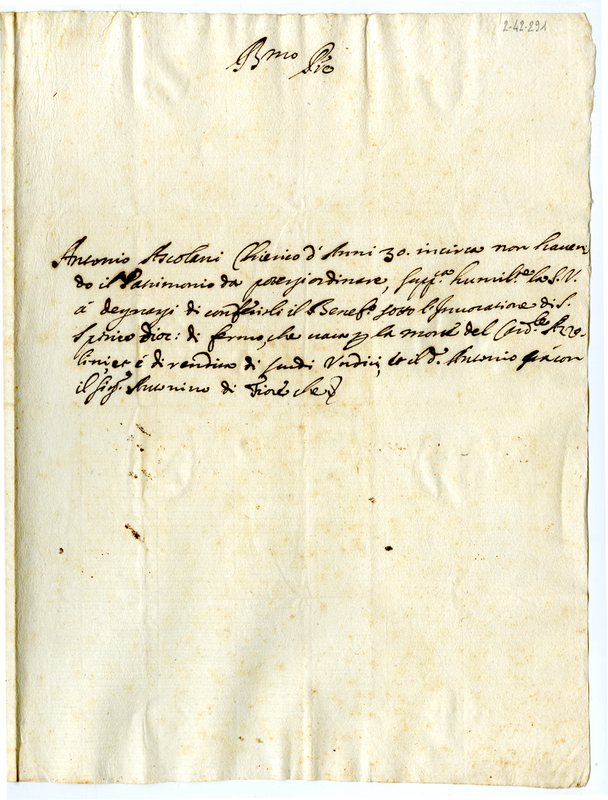 2-42-291
Bmo Pre
Antonio Ascolani Chierico d'Anni 30. incirca non haven-
do il Patrimonio da potersi ordinare, supp.ca humilte la S.V.
á degnarsi di conferirli il Benefo sotto l'Invocatione di S.
Spirito Dioc: di fermo, che vaca p la morte del Card.le Azzo-
lini, et é di rendita di scudi Undici, et il d.o Antonio stá con
il Sig.r Antonino di Fiore che